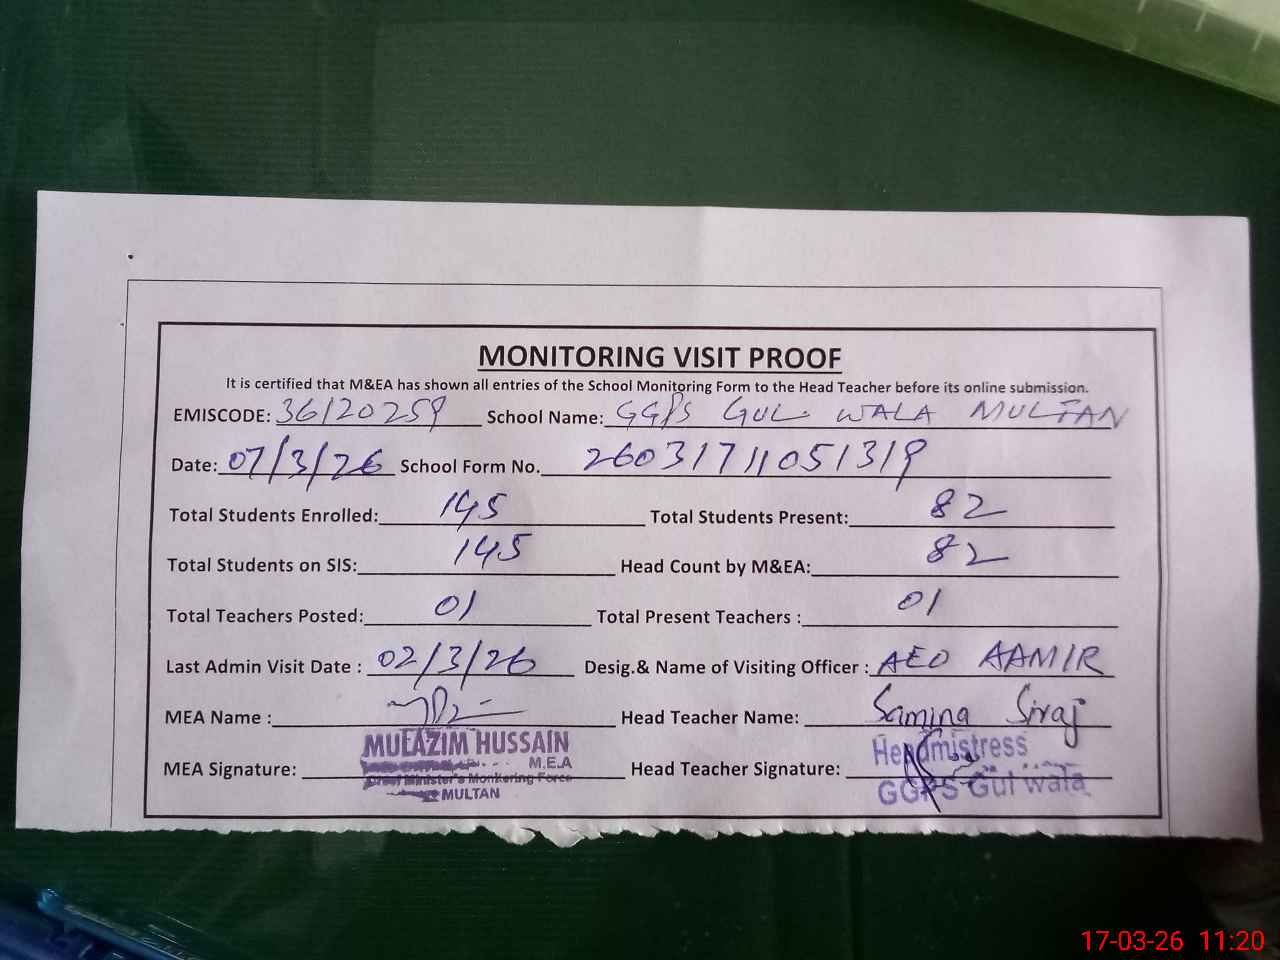 MONITORING VISIT PROOF
It is certified that M&EA has shown all entries of the School Monitoring Form to the Head Teacher before its online submission.
EMISCODE: 36120259 School Name: GGPS GUL WALA MULTAN
Date: 07/3/26 School Form No. 26031711051319
Total Students Enrolled: 145 Total Students Present: 82
Total Students on SIS: 145 Head Count by M&EA: 82
Total Teachers Posted: 01 Total Present Teachers : 01
Last Admin Visit Date : 02/3/26 Desig.& Name of Visiting Officer : AEO AAMIR
MEA Name : Head Teacher Name: Samina Siraj
MUEAZIM HUSSAIN Headmistress
M.E.A
MEA Signature: Head Teacher Signature:
Chief Minister's Monitering Force GGPS Gul Wala
MULTAN
17-03-26 11:20